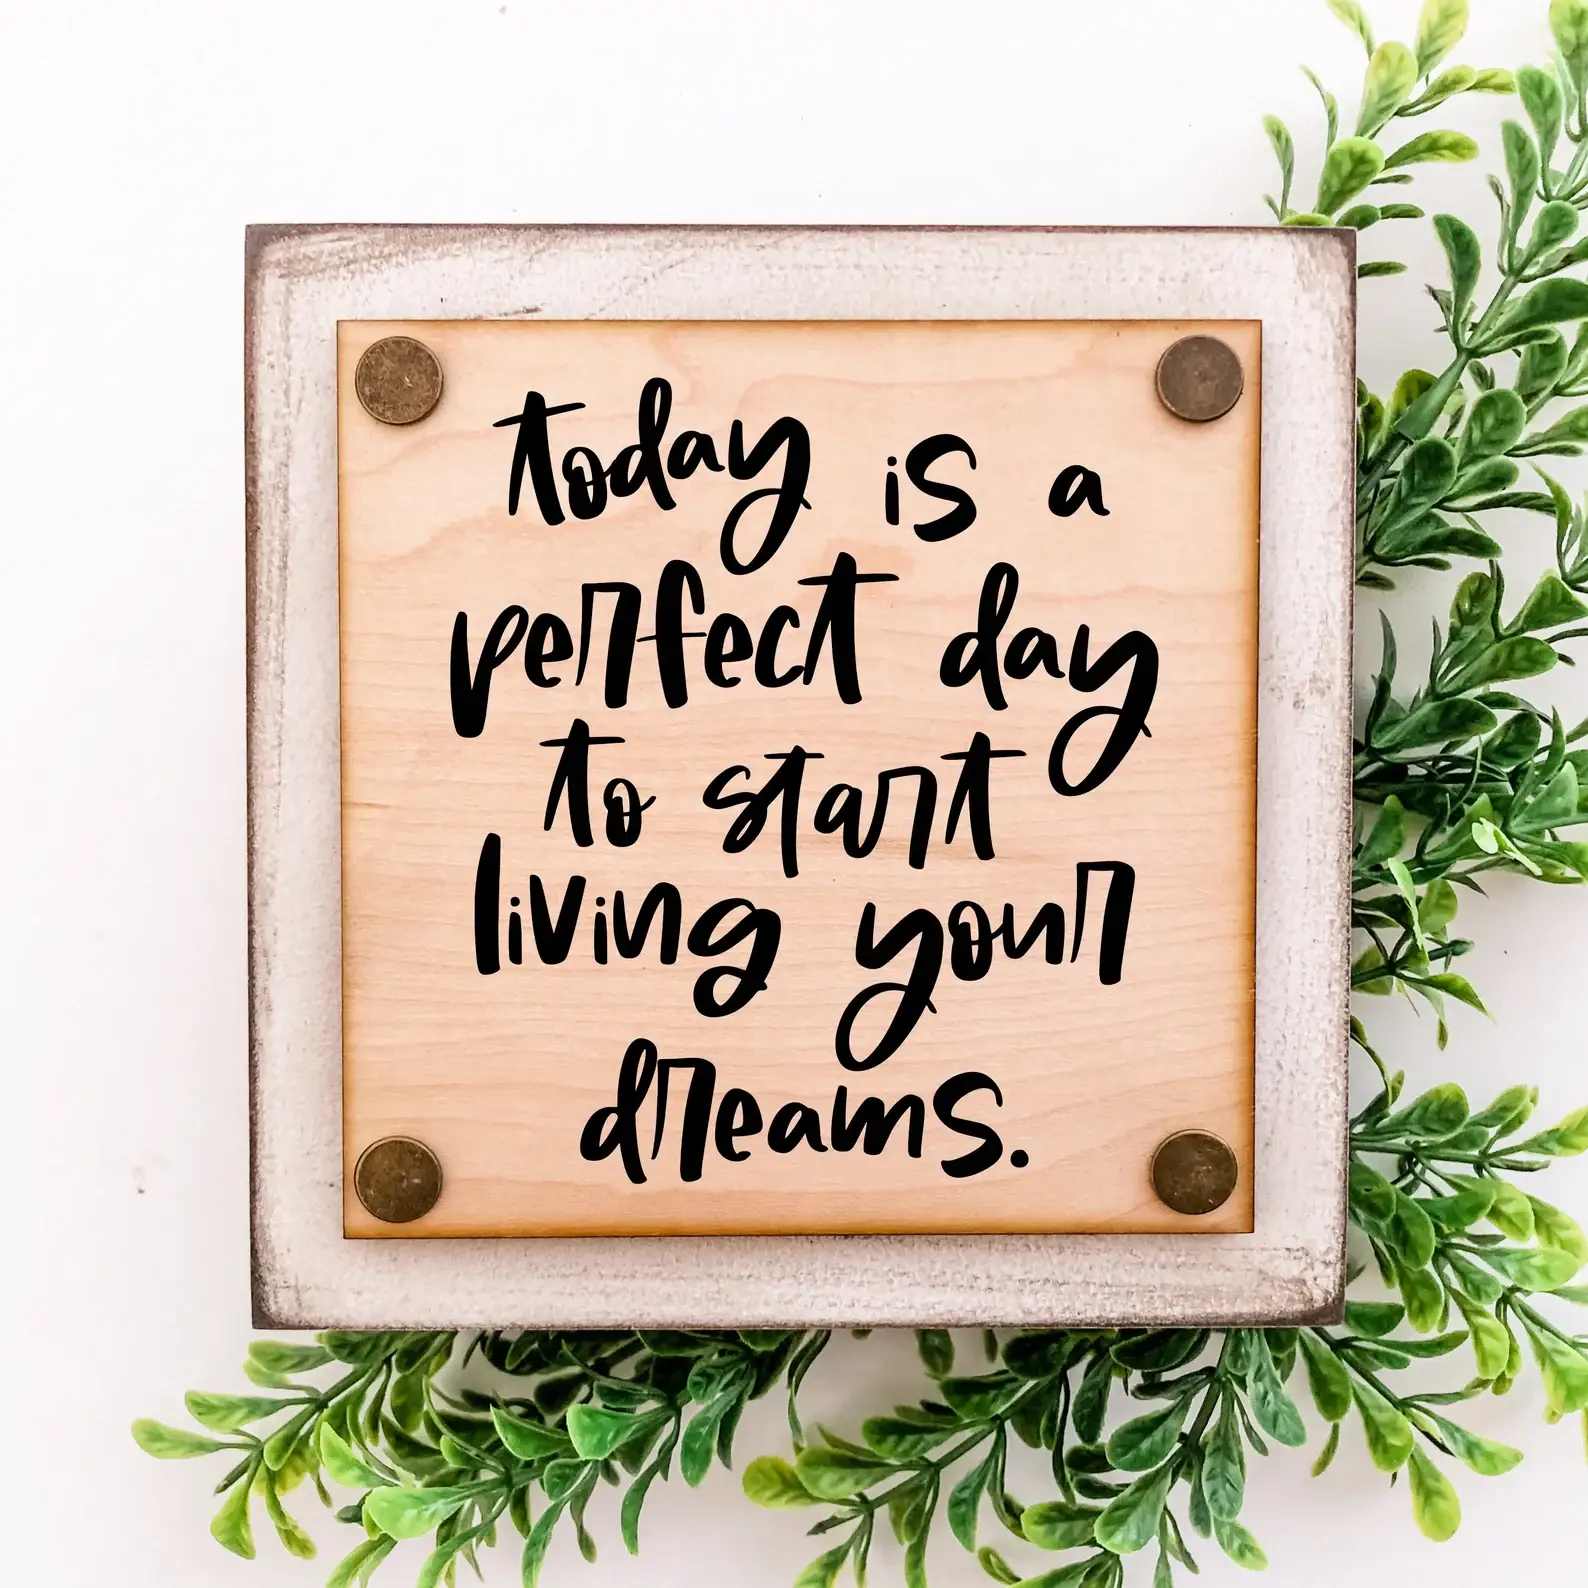 today is a
perfect day
to start
living your
dreams.